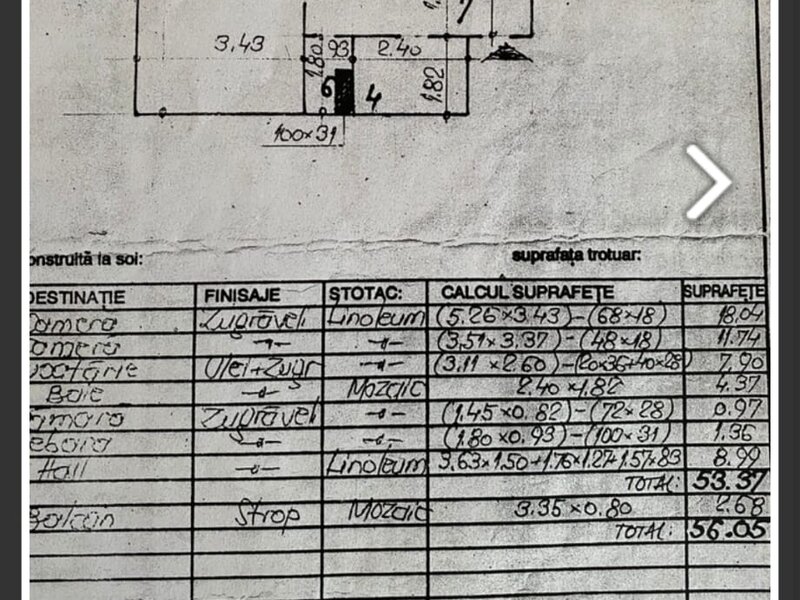 7
3.43
1.80
93
2.40
6
4
1.82
100×31
onstruită la sol:
suprafața trotuar:
DESTINAȚIE FINISAJE STOTAC: CALCUL SUPRAFEȚE SUPRAFEȚE
Camera Zugrăveli Linoleum (5.26×3.43)-(68×18) 18.04
omera -"- (3.51×3.37)-(48×18) 11.74
Ulei+Zugr -"- (3.11×2.60)-(20×36+40×28) 7.90
Baie -"- Mozaic 2.40×1.82 4.37
amara Zugrăveli -"- (1.45×0.82)-(72×28) 0.97
ebara -"- -"- (1.80×0.93)-(100×31) 1.36
Hall -"- Linoleum 3.63×1.50+1.76×1.27+1.57×83 8.99
TOTAL: 53.37
Balcon Strop Mozaic 3.35×0.80 2.68
TOTAL: 56.05